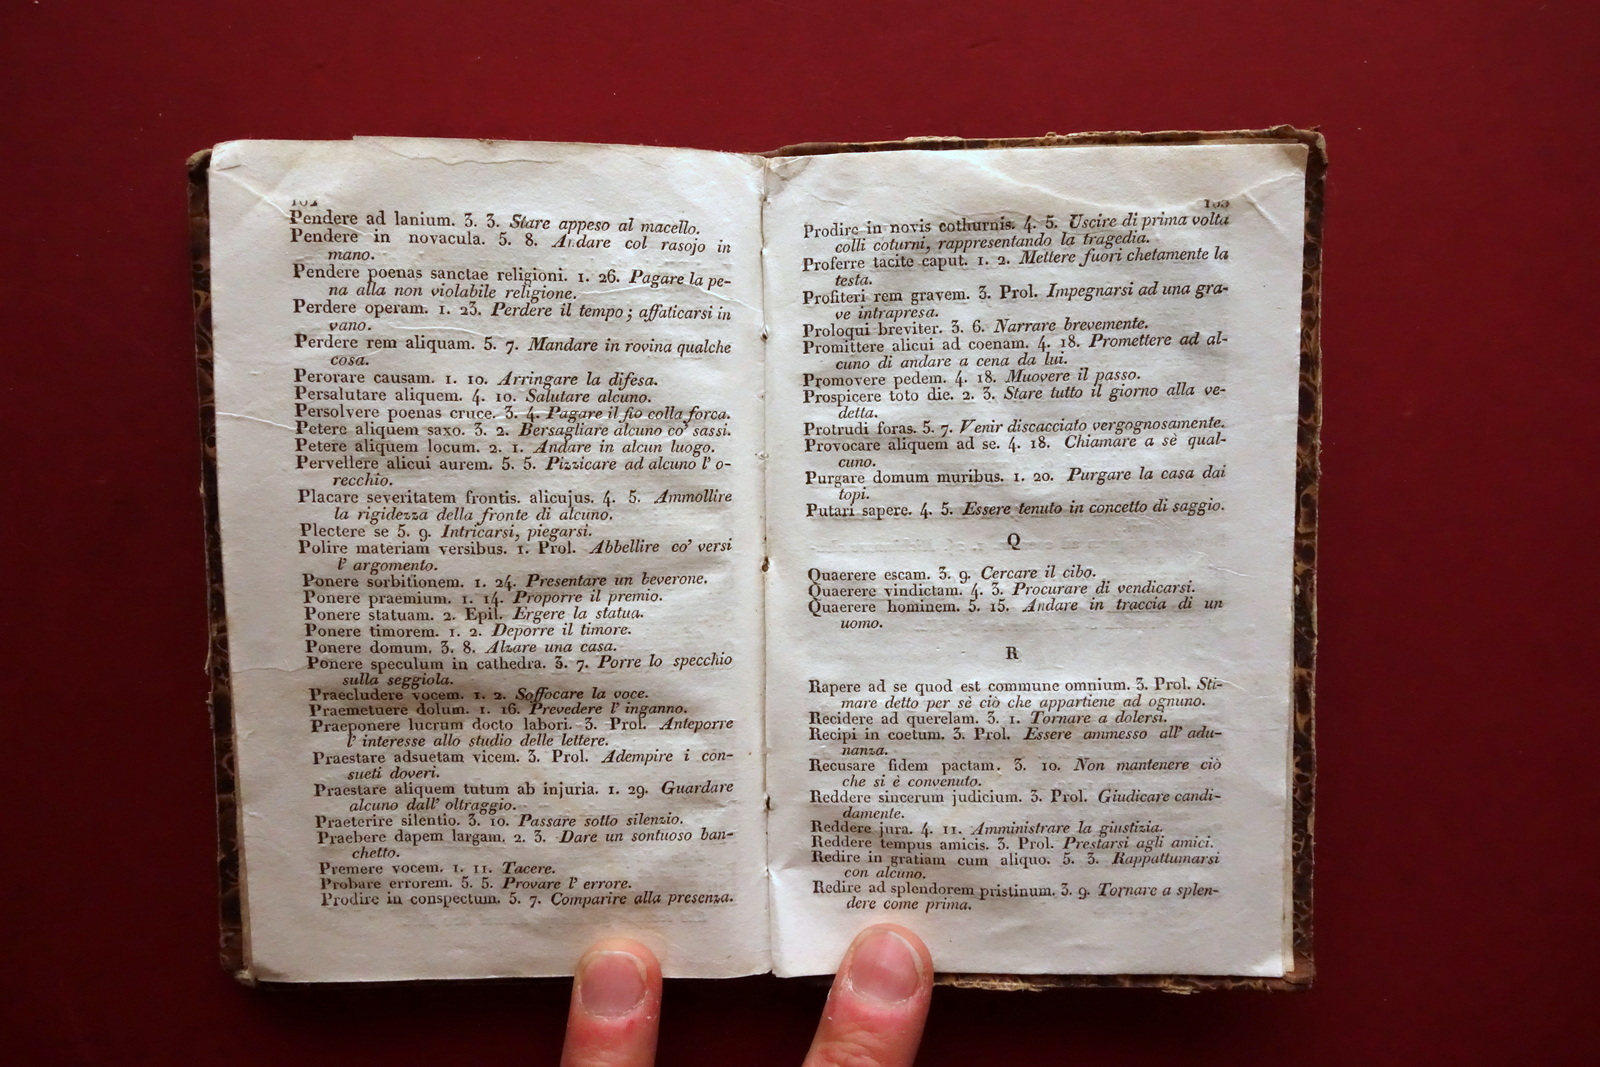 Pendere ad lanium. 3. 3. Stare appeso al macello.
Pendere in novacula. 5. 8. Andare col rasojo in
mano.
Pendere poenas sanctae religioni. 1. 26. Pagare la pe-
na alla non violabile religione.
Perdere operam. 1. 23. Perdere il tempo; affaticarsi in
vano.
Perdere rem aliquam. 5. 7. Mandare in rovina qualche
cosa.
Perorare causam. 1. 10. Arringare la difesa.
Persalutare aliquem. 4. 10. Salutare alcuno.
Persolvere poenas cruce. 3. 4. Pagare il fio colla forca.
Petere aliquem saxo. 3. 2. Bersagliare alcuno co' sassi.
Petere aliquem locum. 2. 1. Andare in alcun luogo.
Pervellere alicui aurem. 5. 5. Pizzicare ad alcuno l' o-
recchio.
Placare severitatem frontis. alicujus. 4. 5. Ammollire
la rigidezza della fronte di alcuno.
Plectere se 5. 9. Intricarsi, piegarsi.
Polire materiam versibus. 1. Prol. Abbellire co' versi
l' argomento.
Ponere sorbitionem. 1. 24. Presentare un beverone.
Ponere praemium. 1. 14. Proporre il premio.
Ponere statuam. 2. Epil. Ergere la statua.
Ponere timorem. 1. 2. Deporre il timore.
Ponere domum. 3. 8. Alzare una casa.
Ponere speculum in cathedra. 3. 7. Porre lo specchio
sulla seggiola.
Praecludere vocem. 1. 2. Soffocare la voce.
Praemetuere dolum. 1. 16. Prevedere l' inganno.
Praeponere lucrum docto labori. 3. Prol. Anteporre
l' interesse allo studio delle lettere.
Praestare adsuetam vicem. 3. Prol. Adempire i con-
sueti doveri.
Praestare aliquem tutum ab injuria. 1. 29. Guardare
alcuno dall' oltraggio.
Praeterire silentio. 3. 10. Passare sotto silenzio.
Praebere dapem largam. 2. 3. Dare un sontuoso ban-
chetto.
Premere vocem. 1. 11. Tacere.
Probare errorem. 5. 5. Provare l' errore.
Prodire in conspectum. 5. 7. Comparire alla presenza.
Prodire in novis cothurnis. 4. 5. Uscire di prima volta
colli coturni, rappresentando la tragedia.
Proferre tacite caput. 1. 2. Mettere fuori chetamente la
testa.
Profiteri rem gravem. 3. Prol. Impegnarsi ad una gra-
ve intrapresa.
Proloqui breviter. 3. 6. Narrare brevemente.
Promittere alicui ad coenam. 4. 18. Promettere ad al-
cuno di andare a cena da lui.
Promovere pedem. 4. 18. Muovere il passo.
Prospicere toto die. 2. 3. Stare tutto il giorno alla ve-
detta.
Protrudi foras. 5. 7. Venir discacciato vergognosamente.
Provocare aliquem ad se. 4. 18. Chiamare a sè qual-
cuno.
Purgare domum muribus. 1. 20. Purgare la casa dai
topi.
Putari sapere. 4. 5. Essere tenuto in concetto di saggio.
Q
Quaerere escam. 3. 9. Cercare il cibo.
Quaerere vindictam. 4. 3. Procurare di vendicarsi.
Quaerere hominem. 5. 15. Andare in traccia di un
uomo.
R
Rapere ad se quod est commune omnium. 3. Prol. Sti-
mare detto per sè ciò che appartiene ad ognuno.
Recidere ad querelam. 3. 1. Tornare a dolersi.
Recipi in coetum. 3. Prol. Essere ammesso all' adu-
nanza.
Recusare fidem pactam. 3. 10. Non mantenere ciò
che si è convenuto.
Reddere sincerum judicium. 3. Prol. Giudicare candi-
damente.
Reddere jura. 4. 11. Amministrare la giustizia.
Reddere tempus amicis. 3. Prol. Prestarsi agli amici.
Redire in gratiam cum aliquo. 5. 3. Rappattumarsi
con alcuno.
Redire ad splendorem pristinum. 3. 9. Tornare a splen-
dere come prima.